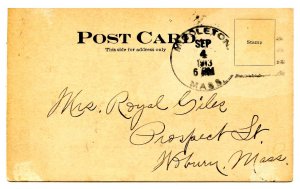 POST CARD
This side for address only
MIDDLETON
SEP
4
1913
6 PM
MASS.
Stamp
Mrs. Royal Giles
Prospect St.
Woburn, Mass.